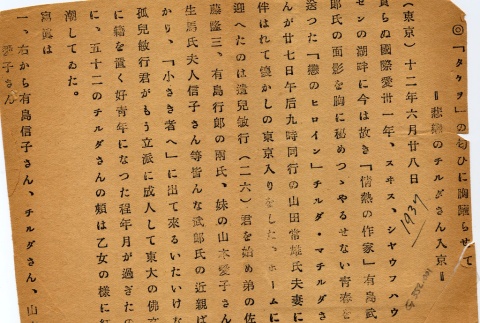 ◎『タタミ』の匂ひに胸躍らせて
＝悲戀のチルダさん入京＝
（東京）十二年六月廿八日
實らぬ國際愛卅一年、スヰス、シヤウフハウ
センの湖畔に今は故き『情熱の作家』有島武
郎氏の面影を胸に秘めつゝやるせない青春を
送つた『戀のヒロイン』チルダ・マチルダさ
んが廿七日午后九時同行の山田常雄氏夫妻に
伴はれて懷かしの東京入りをした、ホームに
迎へたのは遺兒敏行（二六）君を始め弟の佐
藤隆三、有島行郎の兩氏、妹の山本愛子さん
生馬氏夫人信子さん等皆んな武郎氏の近親ば
かり、『小さき者へ』に出て來るいたいけな
孤兒敏行君がもう立派に成人して東大の佛文
に籍を置く好青年になつた程年月が過ぎたの
に、五十二のチルダさんの頬は乙女の樣に紅
潮してゐた。
寫眞は
一、右から有島信子さん、チルダさん、山
愛子さん
1937